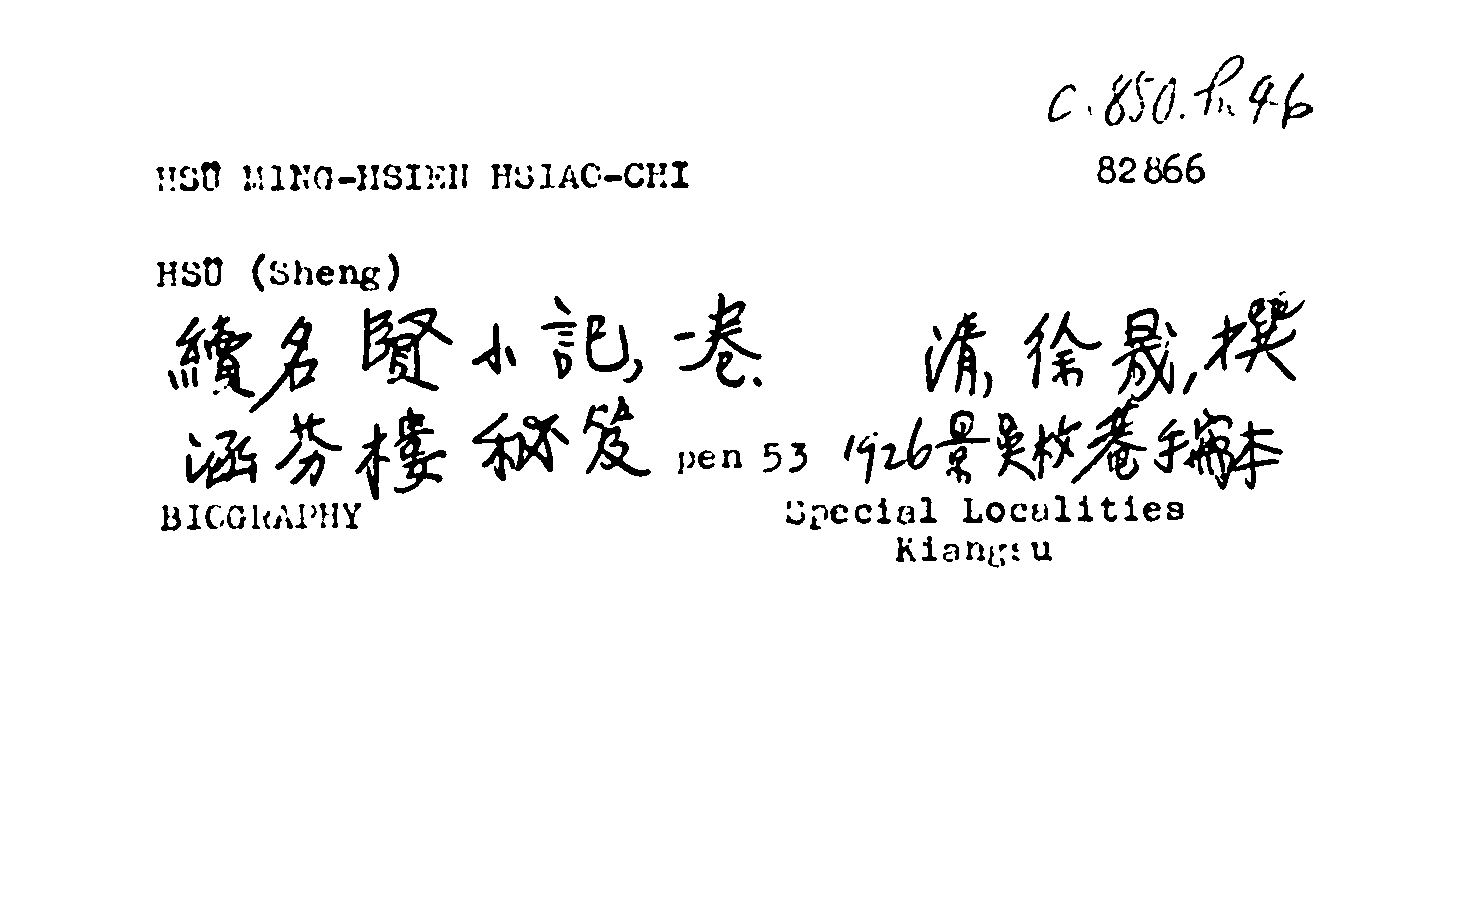 C.850.h.46
HSÜ MING-HSIEN HSIAO-CHI 82866
HSÜ (Sheng)
續名賢小記,一卷. 清,徐晟,撰
涵芬樓秘笈 pen 53 1926景吳枚菴手本
BIOGRAPHY Special Localities
Kiangsu